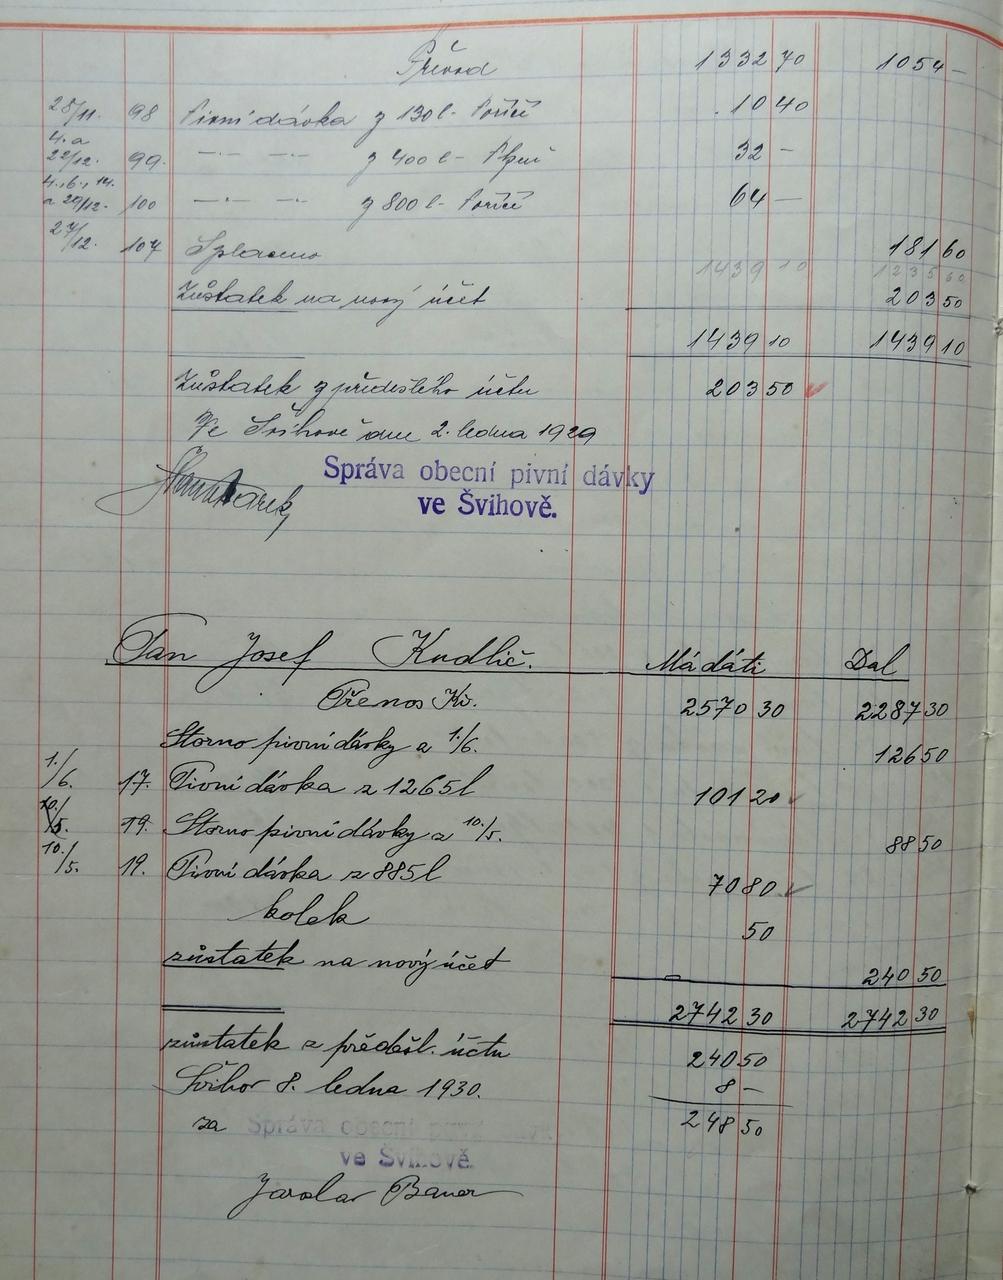 Převod 1332 70 1054 —
28/11. 98 Pivní dávka z 130 l - Poříčí 10 40
4. a 22/12. 99. —·— —·— z 400 l - Plzeň 32 —
4., 6., 14. a 20/12. 100 —·— —·— z 800 l - Poříčí 64 —
27/12. 107 Splaceno 181 60
1439 10 1235 60
Zůstatek na nový účet 203 50
1439 10 1439 10
Zůstatek z předešlého účtu 203 50
Ve Švihově dne 2. ledna 1929
Správa obecní pivní dávky
ve Švihově.
Pan Josef Kudlič. Má dáti Dal
Přenos Kč. 2570 30 2287 30
Storno pivní dávky a 1./6. 126 50
1./6. 17. Pivní dávka z 1265 l 101 20
10./5. 19. Storno pivní dávky z 10./5. 88 50
10./5. 19. Pivní dávka z 885 l 70 80
kolek 50
zůstatek na nový účet 240 50
2742 30 2742 30
zůstatek z předešl. účtu 240 50
Švihov 8. ledna 1930. 8 —
za 248 50
Správa obecní pivní dávky
ve Švihově.
Jaroslav Bauer